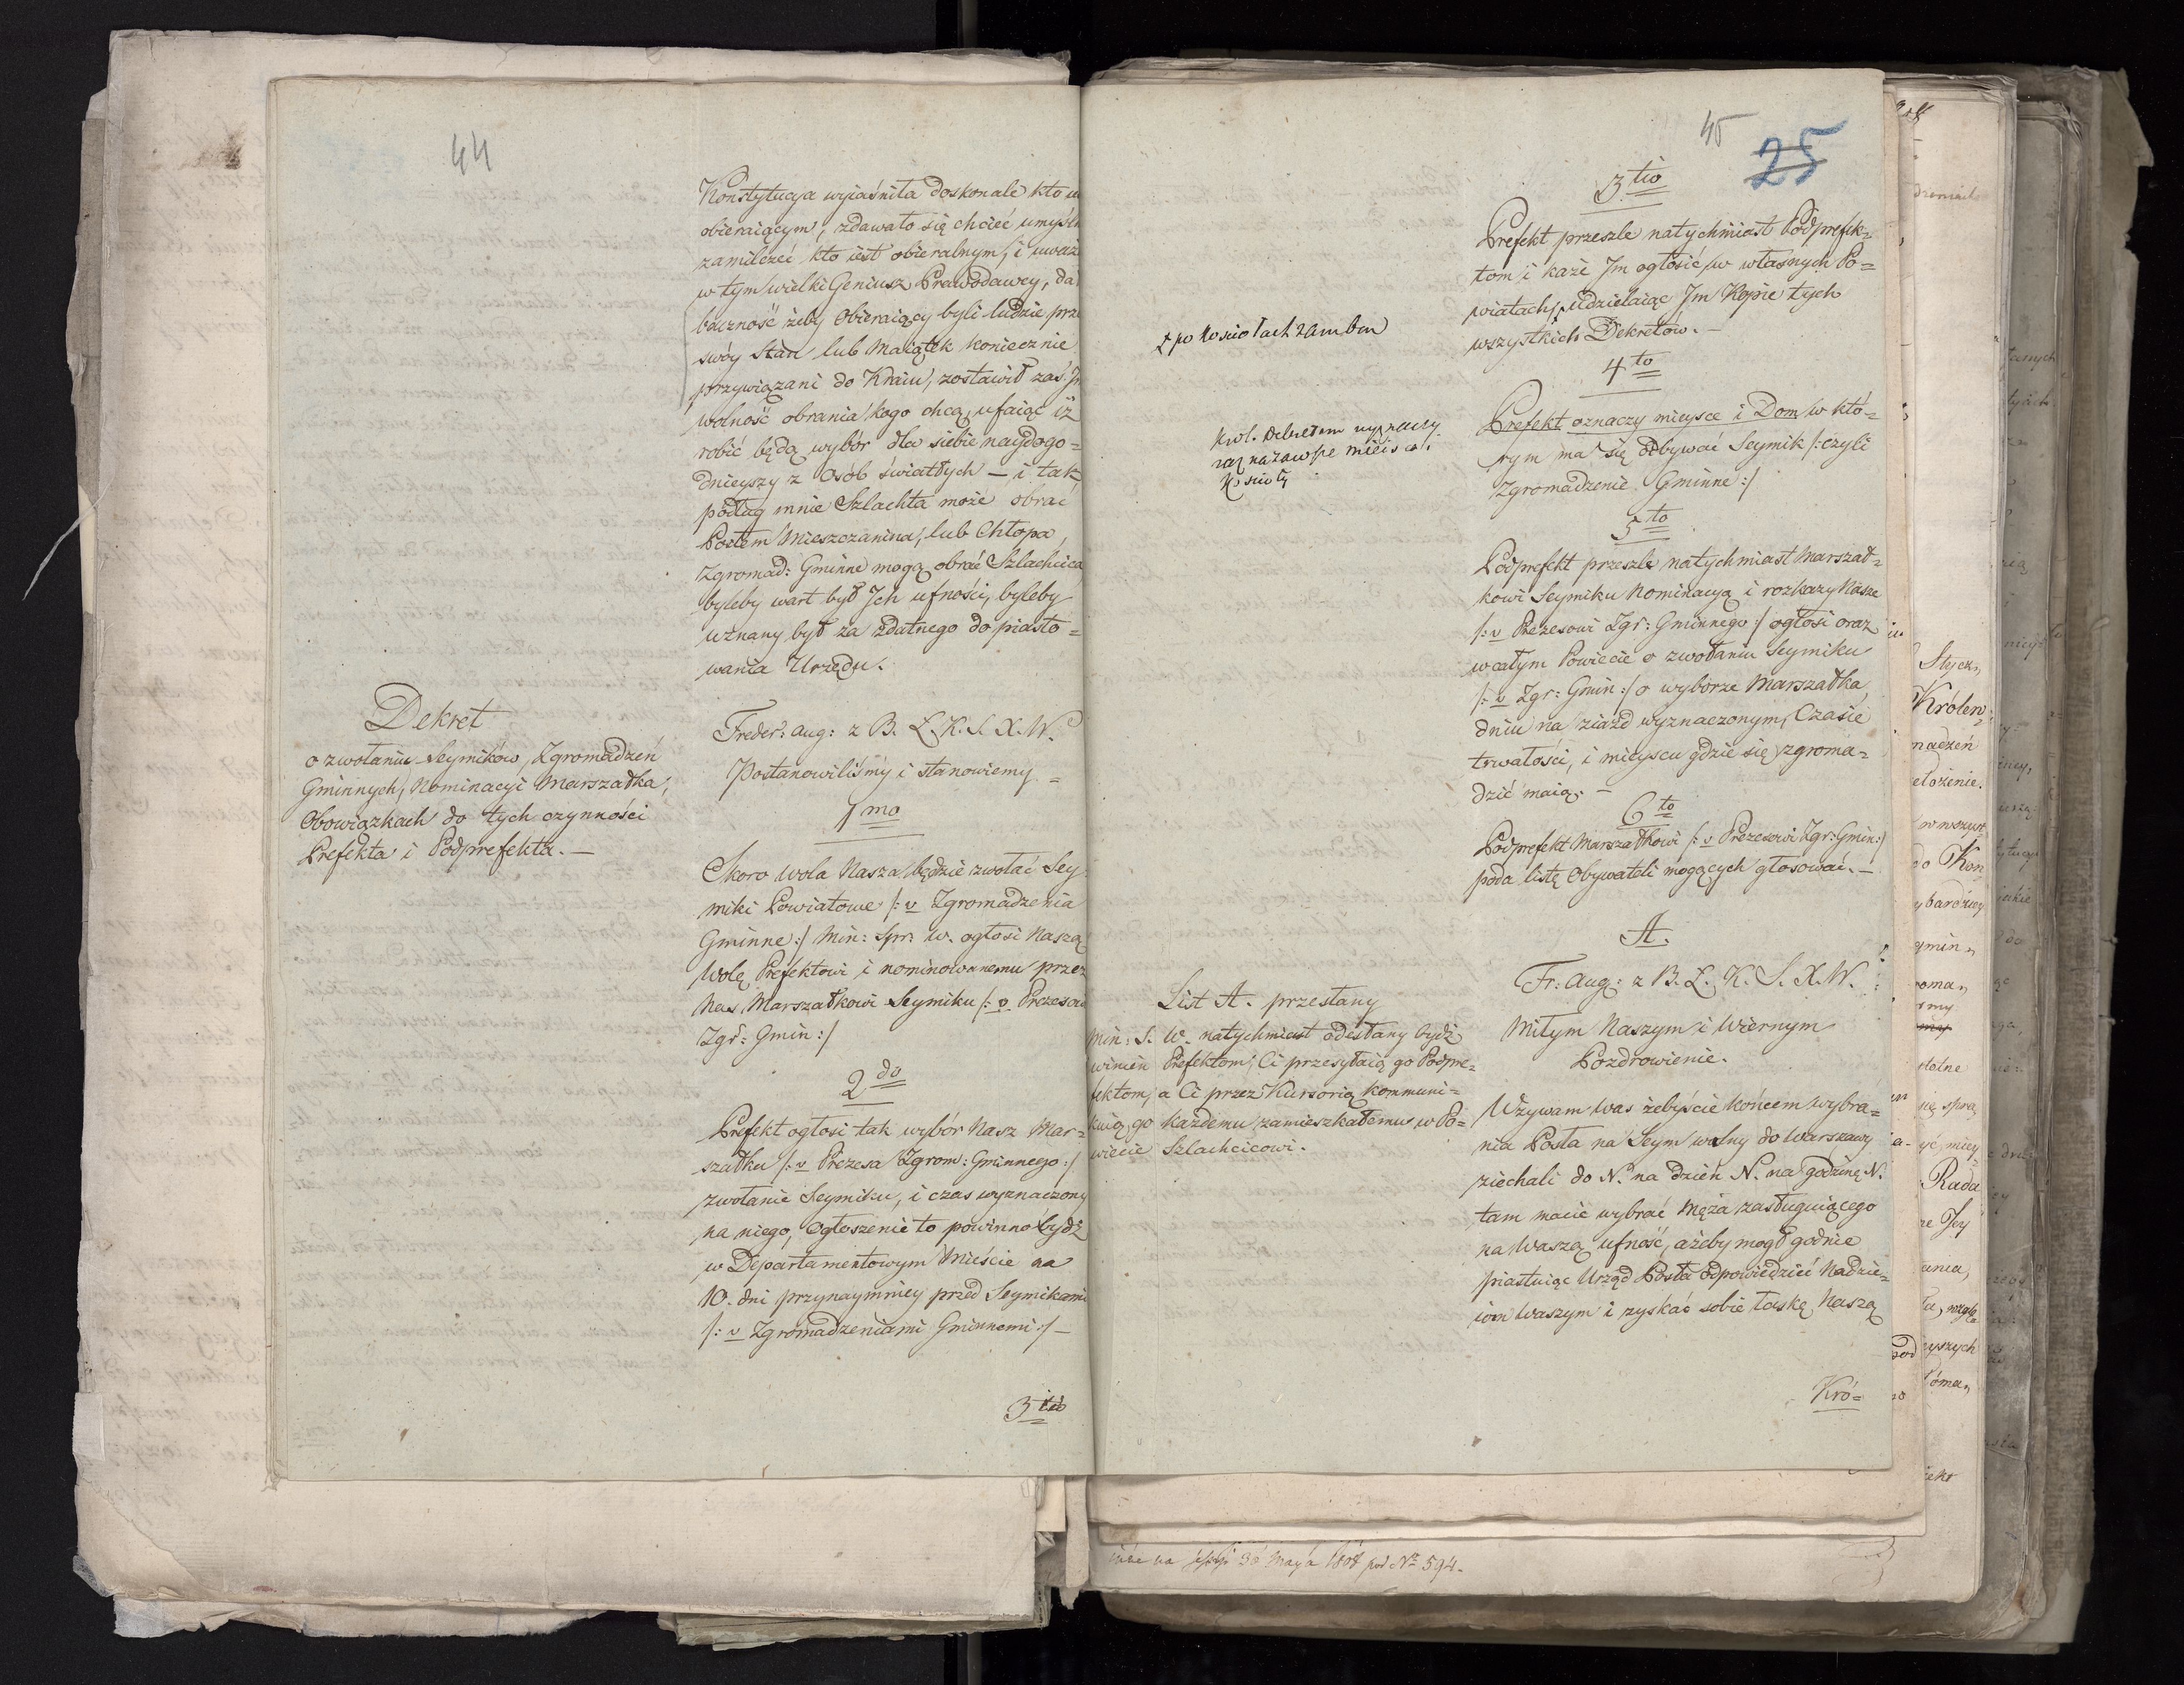 44
Konstytucya wyiaśniła doskonale kto
obieraiącym, zdawało się chcieć
zamilczeć kto iest obieralnym, i
w tym wielki Geniusz Prawodawcy,
baczność żeby Obieraiący byli ludzie
swóy stan lub Maiątek koniecznie
przywiązani do Kraiu, zostawił zaś
wolność obrania kogo chcą, ufaiąc iż
robić będą wybór dla siebie naydogo=
dnieyszy z Osób światłych — i tak
podług mnie Szlachta może obrać
Posłem Mieszczanina, lub Chłopa,
Zgromad: Gminne mogą obrać Szlachcica
byleby wart był Ich ufności, byleby
uznany był za zdatnego do piasto=
wania Urzędu.
Dekret
o zwołaniu Seymików, Zgromadzeń
Gminnych, Nominacyi Marszałka,
Obowiązkach do tych czynności
Prefekta i Podprefekta. —
Freder: Aug: z B. Ł. K. S. X. W.
Postanowiliśmy i stanowiemy =
1mo
Skoro Wola Nasza będzie zwołać Sey
miki Powiatowe /: v Zgromadzenia
Gminne :/ Min: Spr: W. ogłosi Naszą
Wolę Prefektowi i nominowanemu przez
Nas Marszałkowi Seymiku /: v
Zgr: Gmin :/
2do
Prefekt ogłosi tak wybór Nasz Mar=
szałku /: v Prezesa Zgrom: Gminnego :/
zwołanie Seymiku, i czas wyznaczony
na niego, Ogłoszenie to powinno bydź
w Departamentowym Mieście na
10. dni przynaymniey przed Seymikami
/: v Zgromadzeniami Gminnemi :/ —
3tio
45
25
3tio
Prefekt przeszle natychmiast Podprefek=
tom i każe Im ogłosić w własnych Po=
wiatach, udzielaiąc Im Kopie tych
wszystkich Dekretów. —
z po Kosciołach zambon
4to
Prefekt oznaczy mieysce i Dom w któ=
rym ma się odbywać Seymik /: czyli
Zgromadzenie Gminne :/
Krol. Dekretem wyznaczy
raz nazawsze mieisca i
Koscioły
5to
Podprefekt przeszle natychmiast Marszał=
kowi Seymiku Nominacyą i rozkazy Nasze
/: v Prezesowi Zgr: Gminnego :/ ogłosi oraz
w całym Powiecie o zwołaniu Seymiku
/: v Zgr: Gmin :/ o wyborze Marszałka,
dniu na ziazd wyznaczonym, Czasie
trwałości, i mieyscu gdzie się zgroma=
dzić maią. —
6to
Podprefekt Marszałkowi /: v Prezesowi Zgr: Gmin :/
poda listę Obywateli mogących głosować. —
A.
Fr: Aug: z B. Ł. K. S. X. W.
Miłym Naszym i Wiernym
Pozdrowienie.
List A. przesłany
Min: S. W. natychmiast odesłany bydź
winien Prefektom, Ci przesyłaią go Podpre=
fektom, a Ci przez Kursorią kommuni=
kuią go każdemu zamieszkałemu w Po=
wiecie Szlachcicowi.
Wzywam Was żebyście końcem wybra=
nia Posła na Seym walny do Warszawy
ziechali do N. na dzień N. na godzinę N.
tam macie wybrać Męża zasługuiącego
na Waszą ufność, ażeby mogł godnie
piastuiąc Urząd Posła odpowiedzieć Nadzie=
iom Waszym i zyskać sobie łaskę Naszą
Kró=
na 30 Maya 1808 pod No 594.